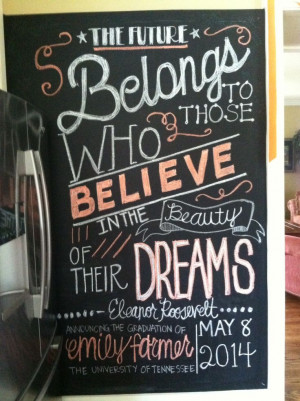 THE FUTURE
Belongs
TO
THOSE
WHO
BELIEVE
IN THE Beauty
OF
THEIR DREAMS
Eleanor Roosevelt
ANNOUNCING THE GRADUATION OF
emily farmer
THE UNIVERSITY OF TENNESSEE
MAY 8
2014